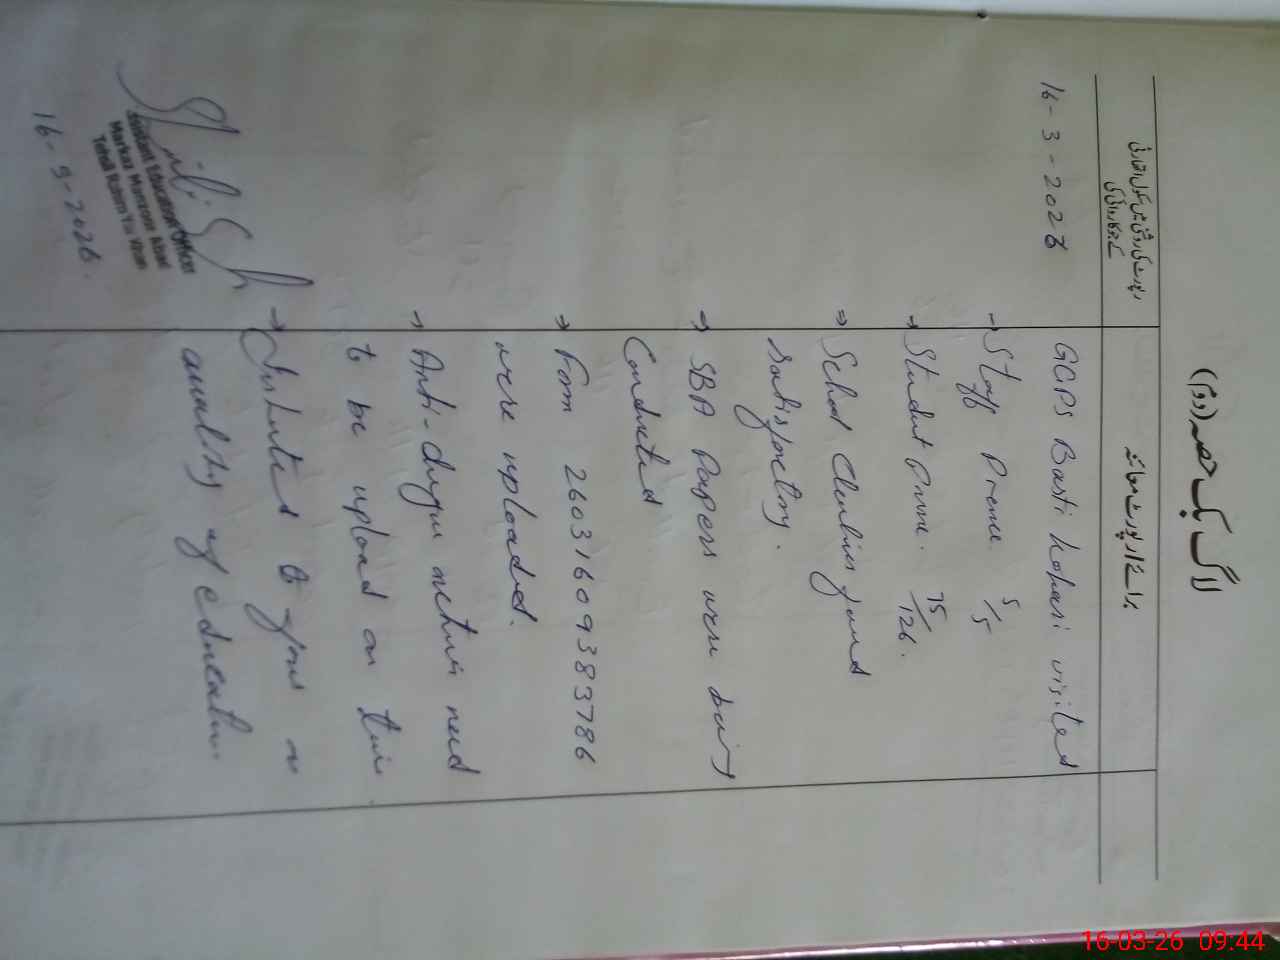 لاگ بک حصہ (دوئم)
برائے اندراج رپورٹ معائنہ
16-3-2026
GGPS Basti Lohari visited
→ Staff Presence 5/5
→ Student Presence. 75/126.
→ School Cleanliness found
satisfactory.
→ SBA Papers were being
Conducted
→ Form 26031609383786
were uploaded.
→ Anti-dengue activities need
to be upload on time
→ to focus on
quality of education.
Assistant Education Officer
Markaz Manzoor Abad
Tehsil Rahim Yar Khan
16-3-2026.
16-03-26 09:44